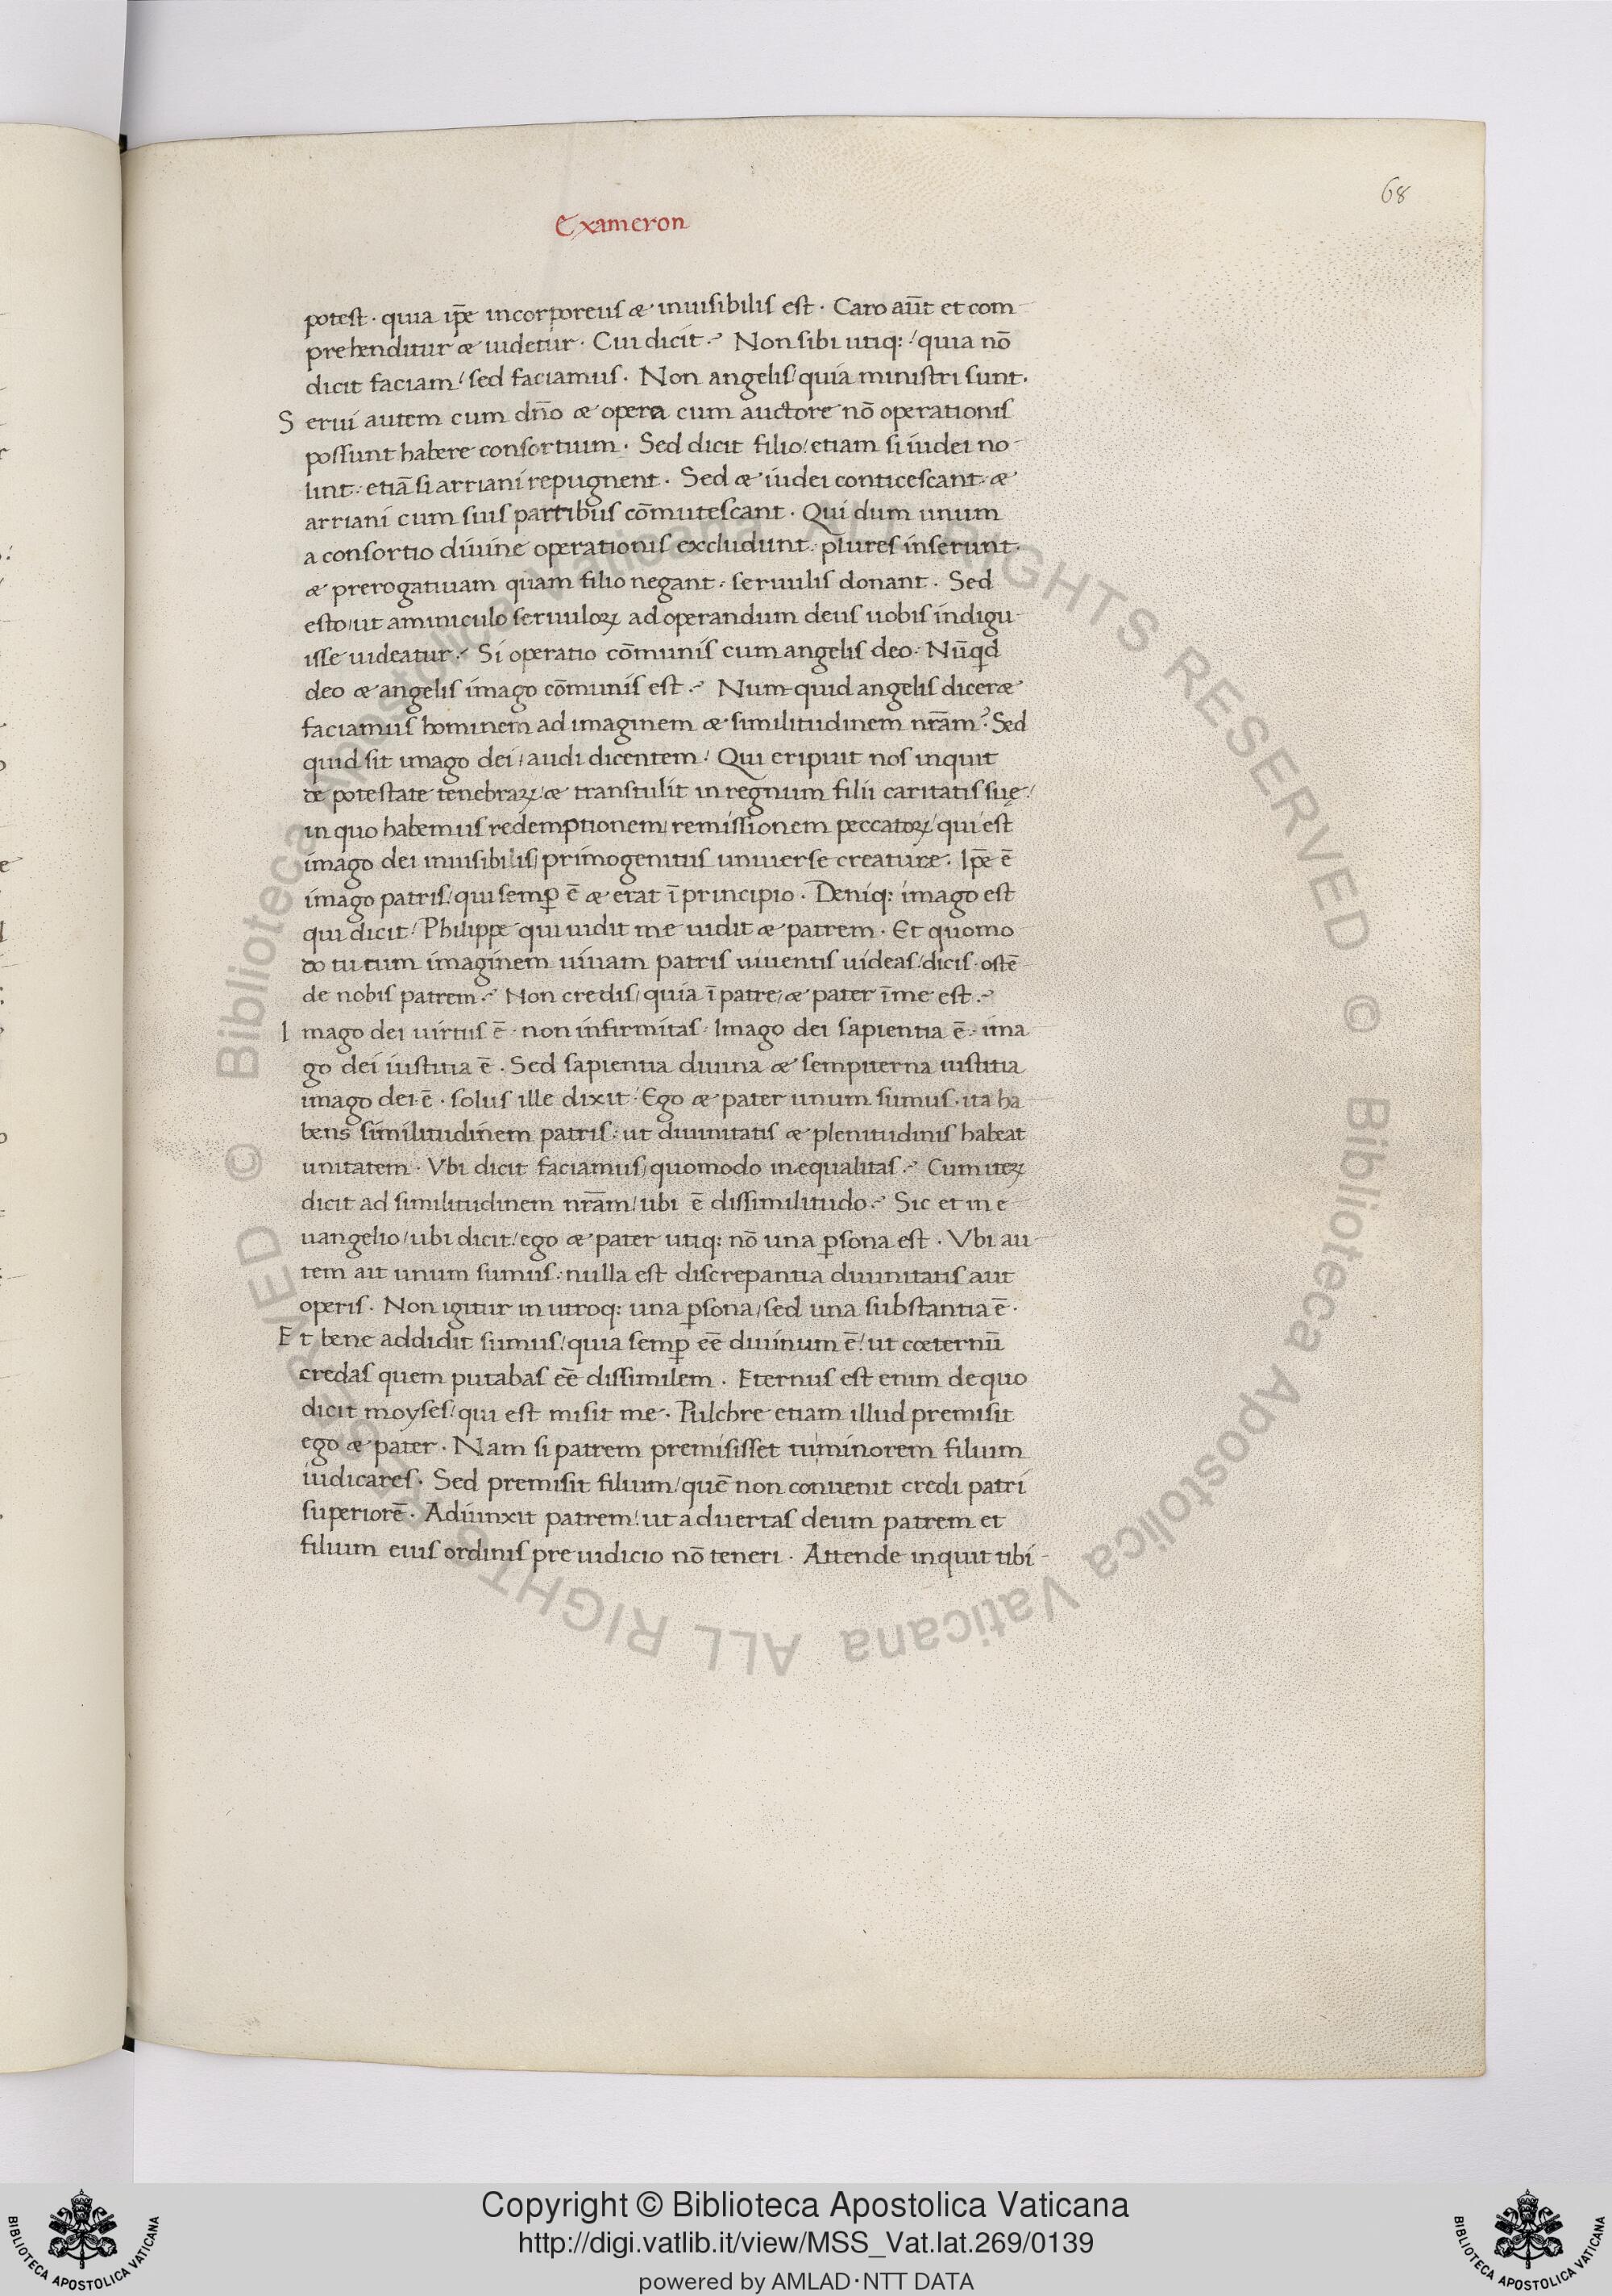 68
Exameron
potest · quia ip̄e incorporeus & inuisibilis est · Caro aūt et com
prehenditur & uidetur · Cui dicit ? Non sibi utiq: / quia nō
dicit faciam / sed faciamus · Non angelis / quia ministri sunt ·
Serui autem cum dn̄o & opera cum auctore nō operationis
possunt habere consortium · Sed dicit filio / etiam si iudei no
lint : etiā si arriani repugnent · Sed & iudei conticescant : &
arriani cum suis partibus cōmutescant · Qui dum unum
a consortio diuine operationis excludunt : plures inserunt ·
& prerogatiuam quam filio negant : seruulis donant · Sed
esto / ut aminiculo seruuloꝝ ad operandum deus uobis indigu
isse uideatur ? Si operatio cōmunis cum angelis deo : Nūqd
deo & angelis imago cōmunis est ? Num quid angelis diceret
faciamus hominem ad imaginem & similitudinem nr̄am ? Sed
quid sit imago dei / audi dicentem / Qui eripuit nos inquit
de potestate tenebraꝝ / & transtulit in regnum filii caritatis suę /
in quo habemus redemptionem / remissionem peccatoꝝ / qui est
imago dei inuisibilis / primogenitus uniuerse creature · Ip̄e ē
imago patris / qui semꝑ ē & erat ī principio · Deniq: imago est
qui dicit / Philippe qui uidit me uidit & patrem · Et quomo
do tu cum imaginem uiuam patris uiuentis uideas / dicis · ostē
de nobis patrem ? Non credis / quia ī patre / & pater ī me est ?
Imago dei uirtus ē · non infirmitas : Imago dei sapientia ē : ima
go dei iustitia ē · Sed sapientia diuina & sempiterna iustitia
imago dei ē · solus ille dixit : Ego & pater unum sumus · ita ha
bens similitudinem patris : ut diuinitatis & plenitudinis habeat
unitatem · Vbi dicit faciamus / quomodo inequalitas ? Cum iteꝝ
dicit ad similitudinem nr̄am / ubi ē dissimilitudo ? Sic et in e
uangelio / ubi dicit / ego & pater utiq: nō una ꝑsona est · Vbi au
tem ait unum sumus : nulla est discrepantia diuinitatis aut
operis · Non igitur in utroq: una ꝑsona / sed una substantia ē ·
Et bene addidit sumus / quia semꝑ eē diuinum ē / ut coeternū
credas quem putabas eē dissimilem · Eternus est enim de quo
dicit moyses / qui est misit me · Pulchre etiam illud premisit
ego & pater · Nam si patrem premisisset tu minorem filium
iudicares · Sed premisit filium / quē non conuenit credi patri
superiorē · Adiunxit patrem / ut aduertas deum patrem et
filium eius ordinis preiudicio nō teneri · Attende inquit tibi
© Biblioteca Apostolica Vaticana ALL RIGHTS RESERVED © Biblioteca Apostolica Vaticana ALL RIGHTS RESERVED
Copyright © Biblioteca Apostolica Vaticana
http://digi.vatlib.it/view/MSS_Vat.lat.269/0139
powered by AMLAD·NTT DATA
BIBLIOTECA APOSTOLICA VATICANA
BIBLIOTECA APOSTOLICA VATICANA